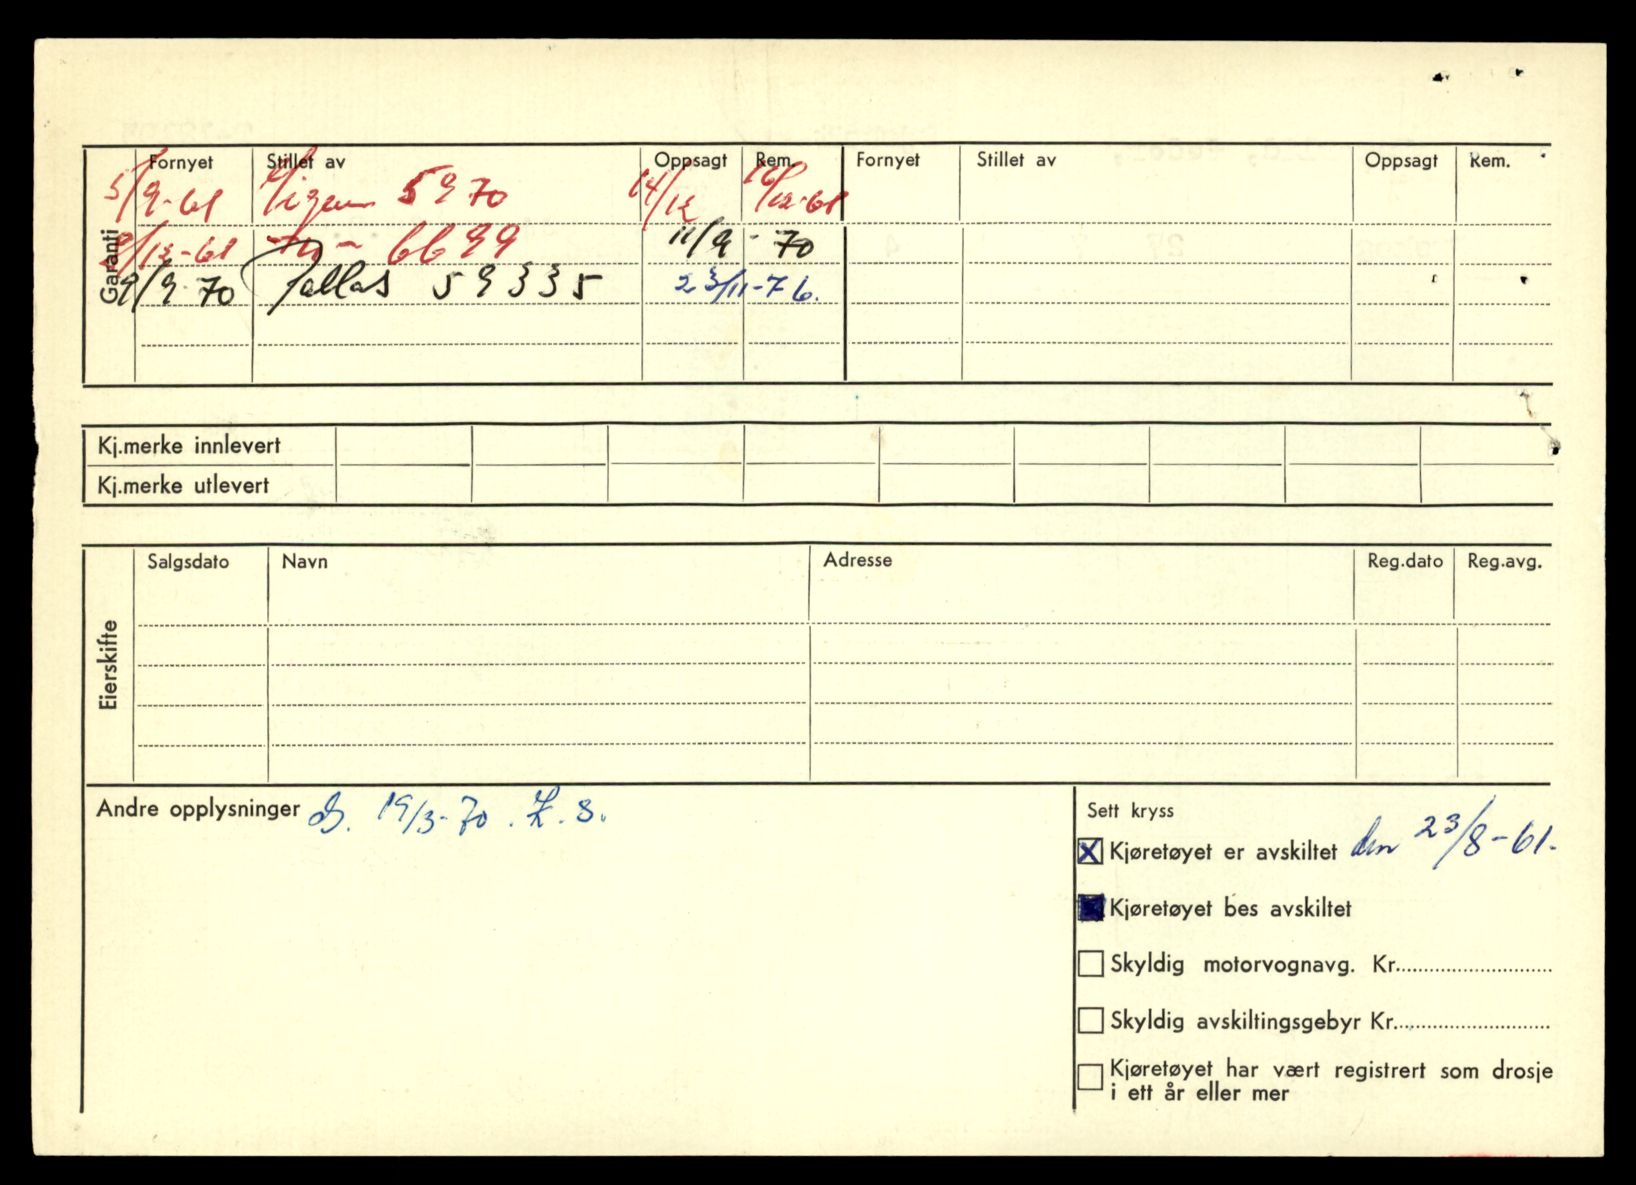 Garanti
Fornyet Stillet av Oppsagt Rem. Fornyet Stillet av Oppsagt Rem.
5/9-61 5970 14/12 16/12-61
2/12-61 -"- 6699 11/9 - 70
9/9 70 Pallas 59335 23/11-76.
Kj.merke innlevert
Kj.merke utlevert
Eierskifte
Salgsdato Navn Adresse Reg.dato Reg.avg.
Andre opplysninger 19/3-70.
Sett kryss
Kjøretøyet er avskiltet den 23/8-61.
Kjøretøyet bes avskiltet
Skyldig motorvognavg. Kr.
Skyldig avskiltingsgebyr Kr.
Kjøretøyet har vært registrert som drosje
i ett år eller mer